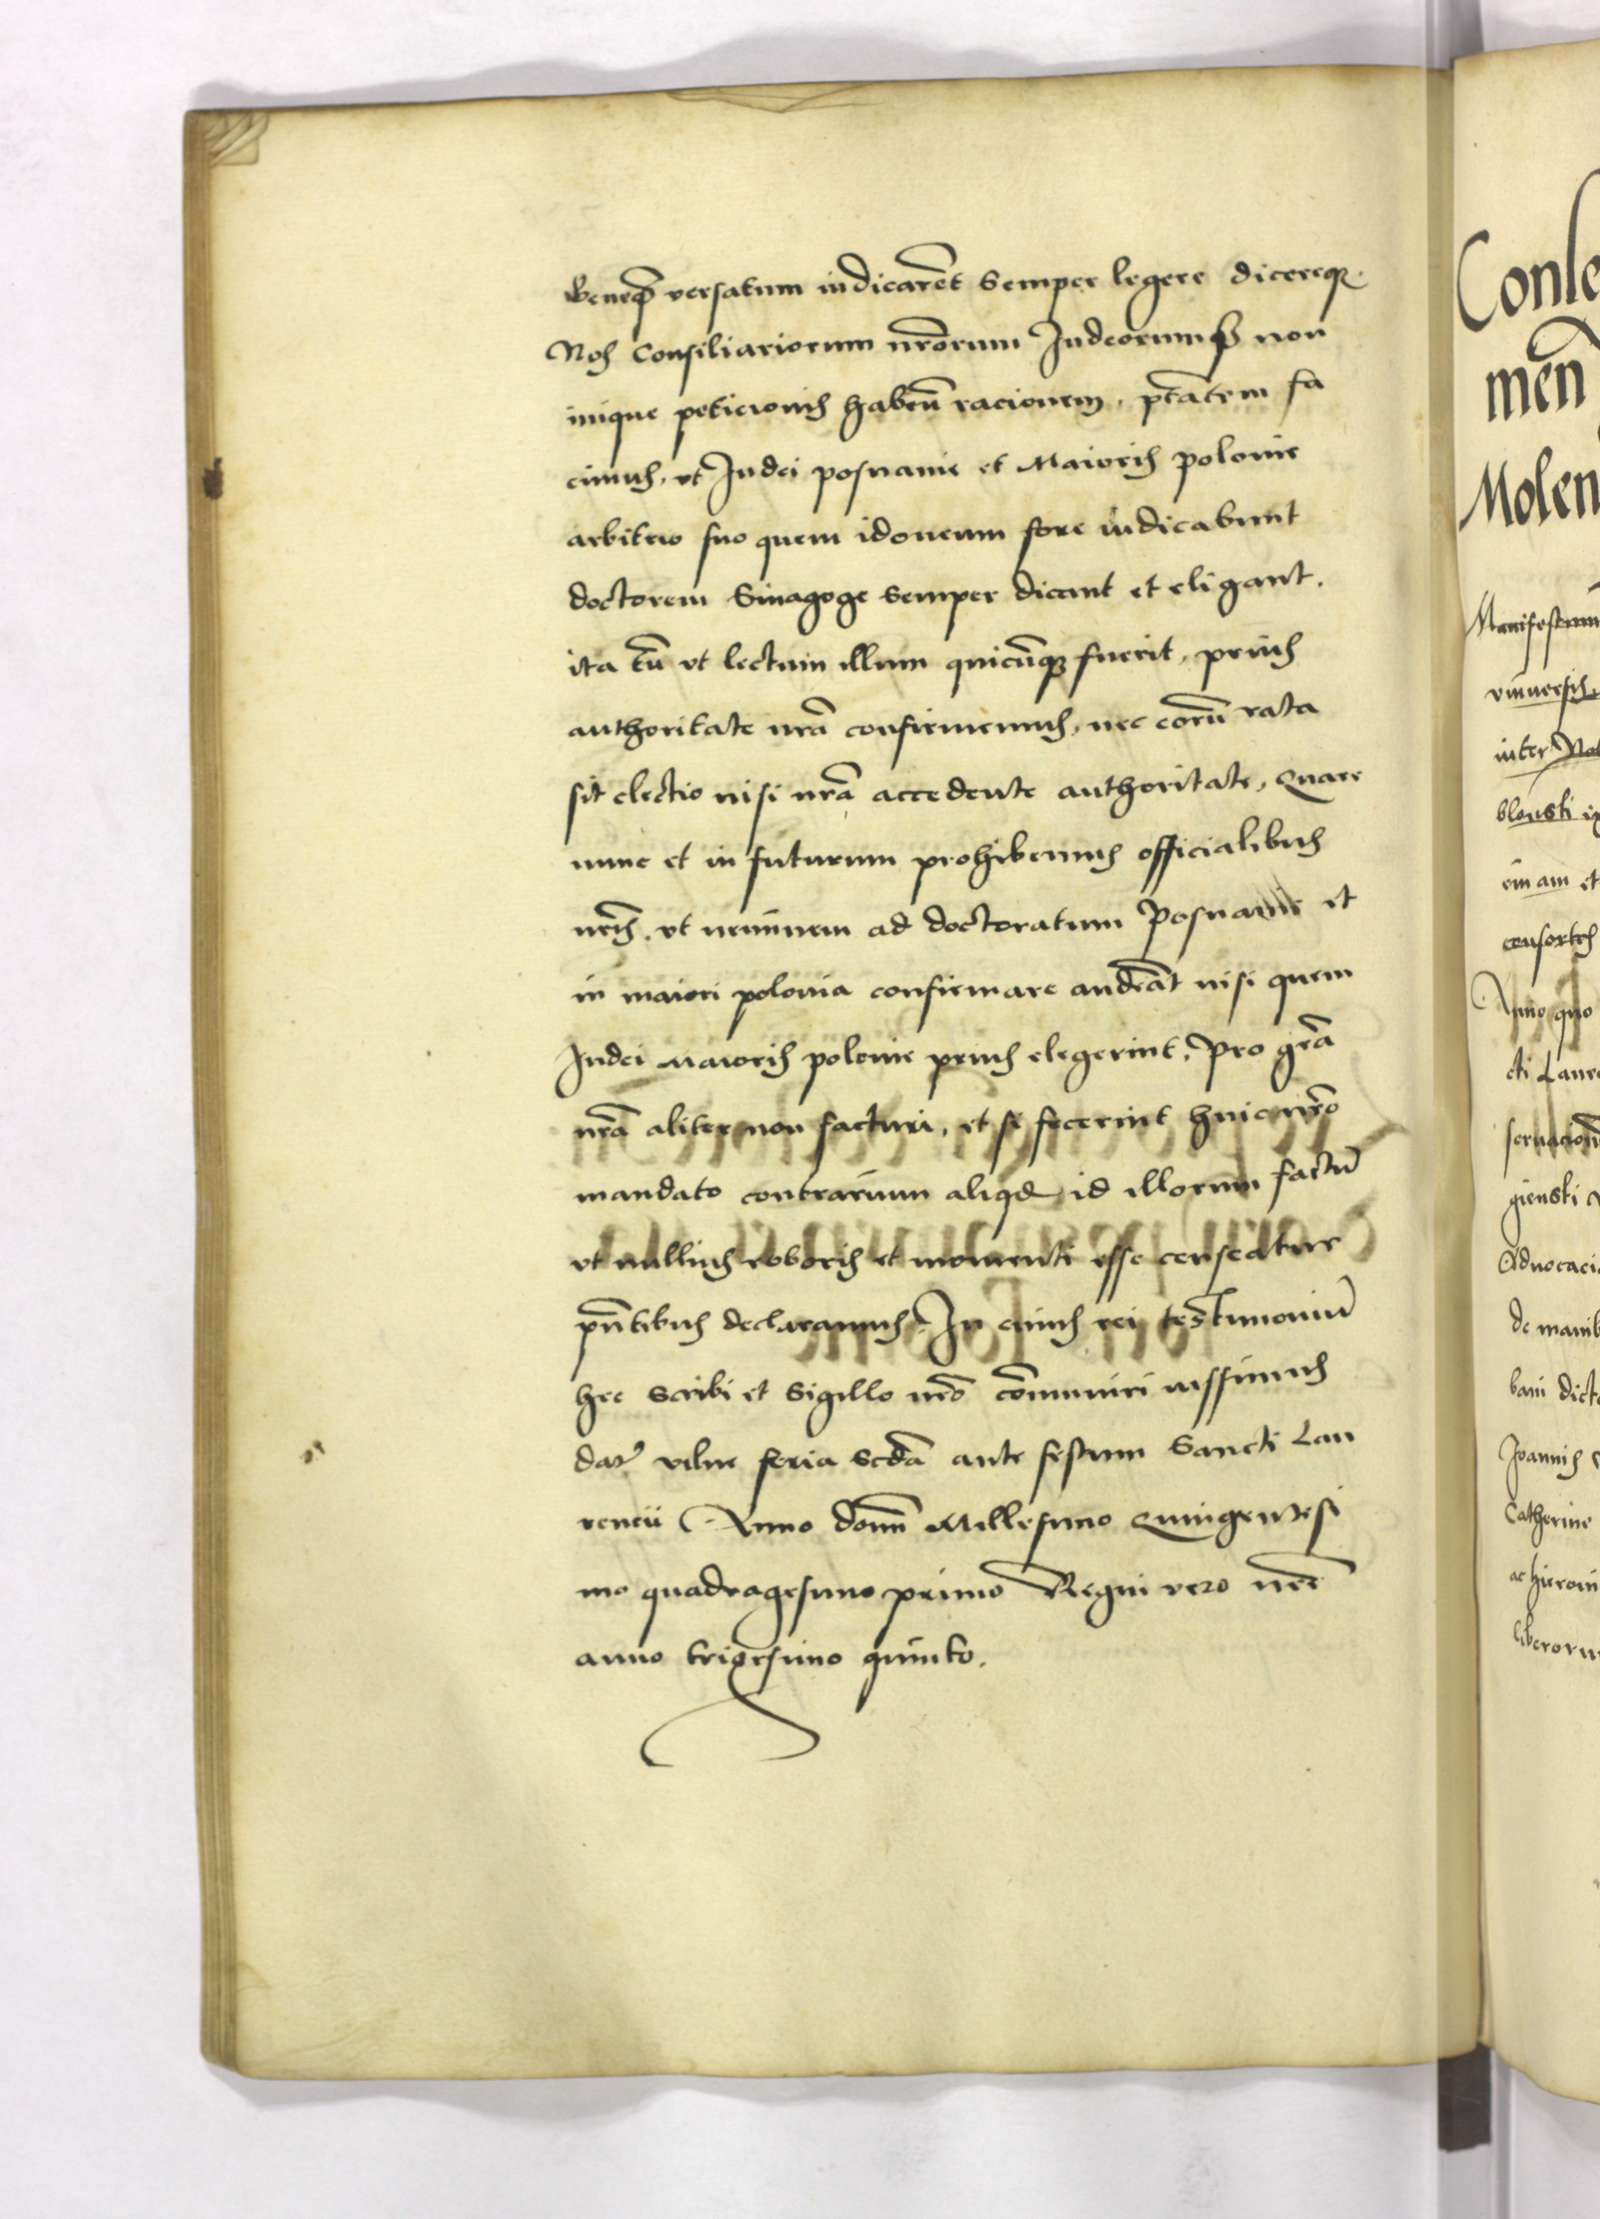 Beneqз versatum iudicarēt semper legere dicereqз.
Nos Consiliariorum nrōrum Iudeorumqз non
inique peticionis habeñ racionem, ptātem fa
cimus, vt Iudei posnanie et Maioris polonie
arbitrio suo quem idoneum fore iudicabunt
doctorem Sinagoge semper dicant et eligant.
ita tñ vt lectum illum quicūqз fuerit, prius
authoritate nrā confirmemus, nec eorū rata
sit electio nisi nrā accedente authoritate, Quare
nunc et in futurum prohibemus officialibus
nrīs, vt neminem ad doctoratum Posnanie et
in maiori polonia confirmare audeāt nisi quem
Iudei Maioris polonie prius elegerint, Pro grā
nrā aliter non facturi, et si fecerint huic nrō
mandato contrarium aliqd id illorum factū
vt nullius roboris et momenti esse censeatur
pñtibus declaramus, In cuius rei testimoniū
hec scribi et Sigillo nrō cōmuniri iussimus
dat vilne feria scdā ante festum Sancti Lau
rencii Anno domī Millesimo Quingentesi
mo quadragesimo primo Regni vero nrē
anno trigesimo quinto.
Conse
men
Molen
Manifestum
vniuersis
inter Nob
blonski
em am et
consortes
Anno quo
cti Laure
seruacion
gienski
Aduocaci
de manib
bani dict
Joannis
Catherine
ac hieroni
liberorum